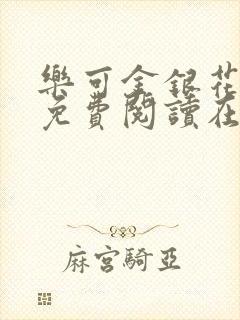 樂可金銀花
免費閱讀在
麻宮騎亞